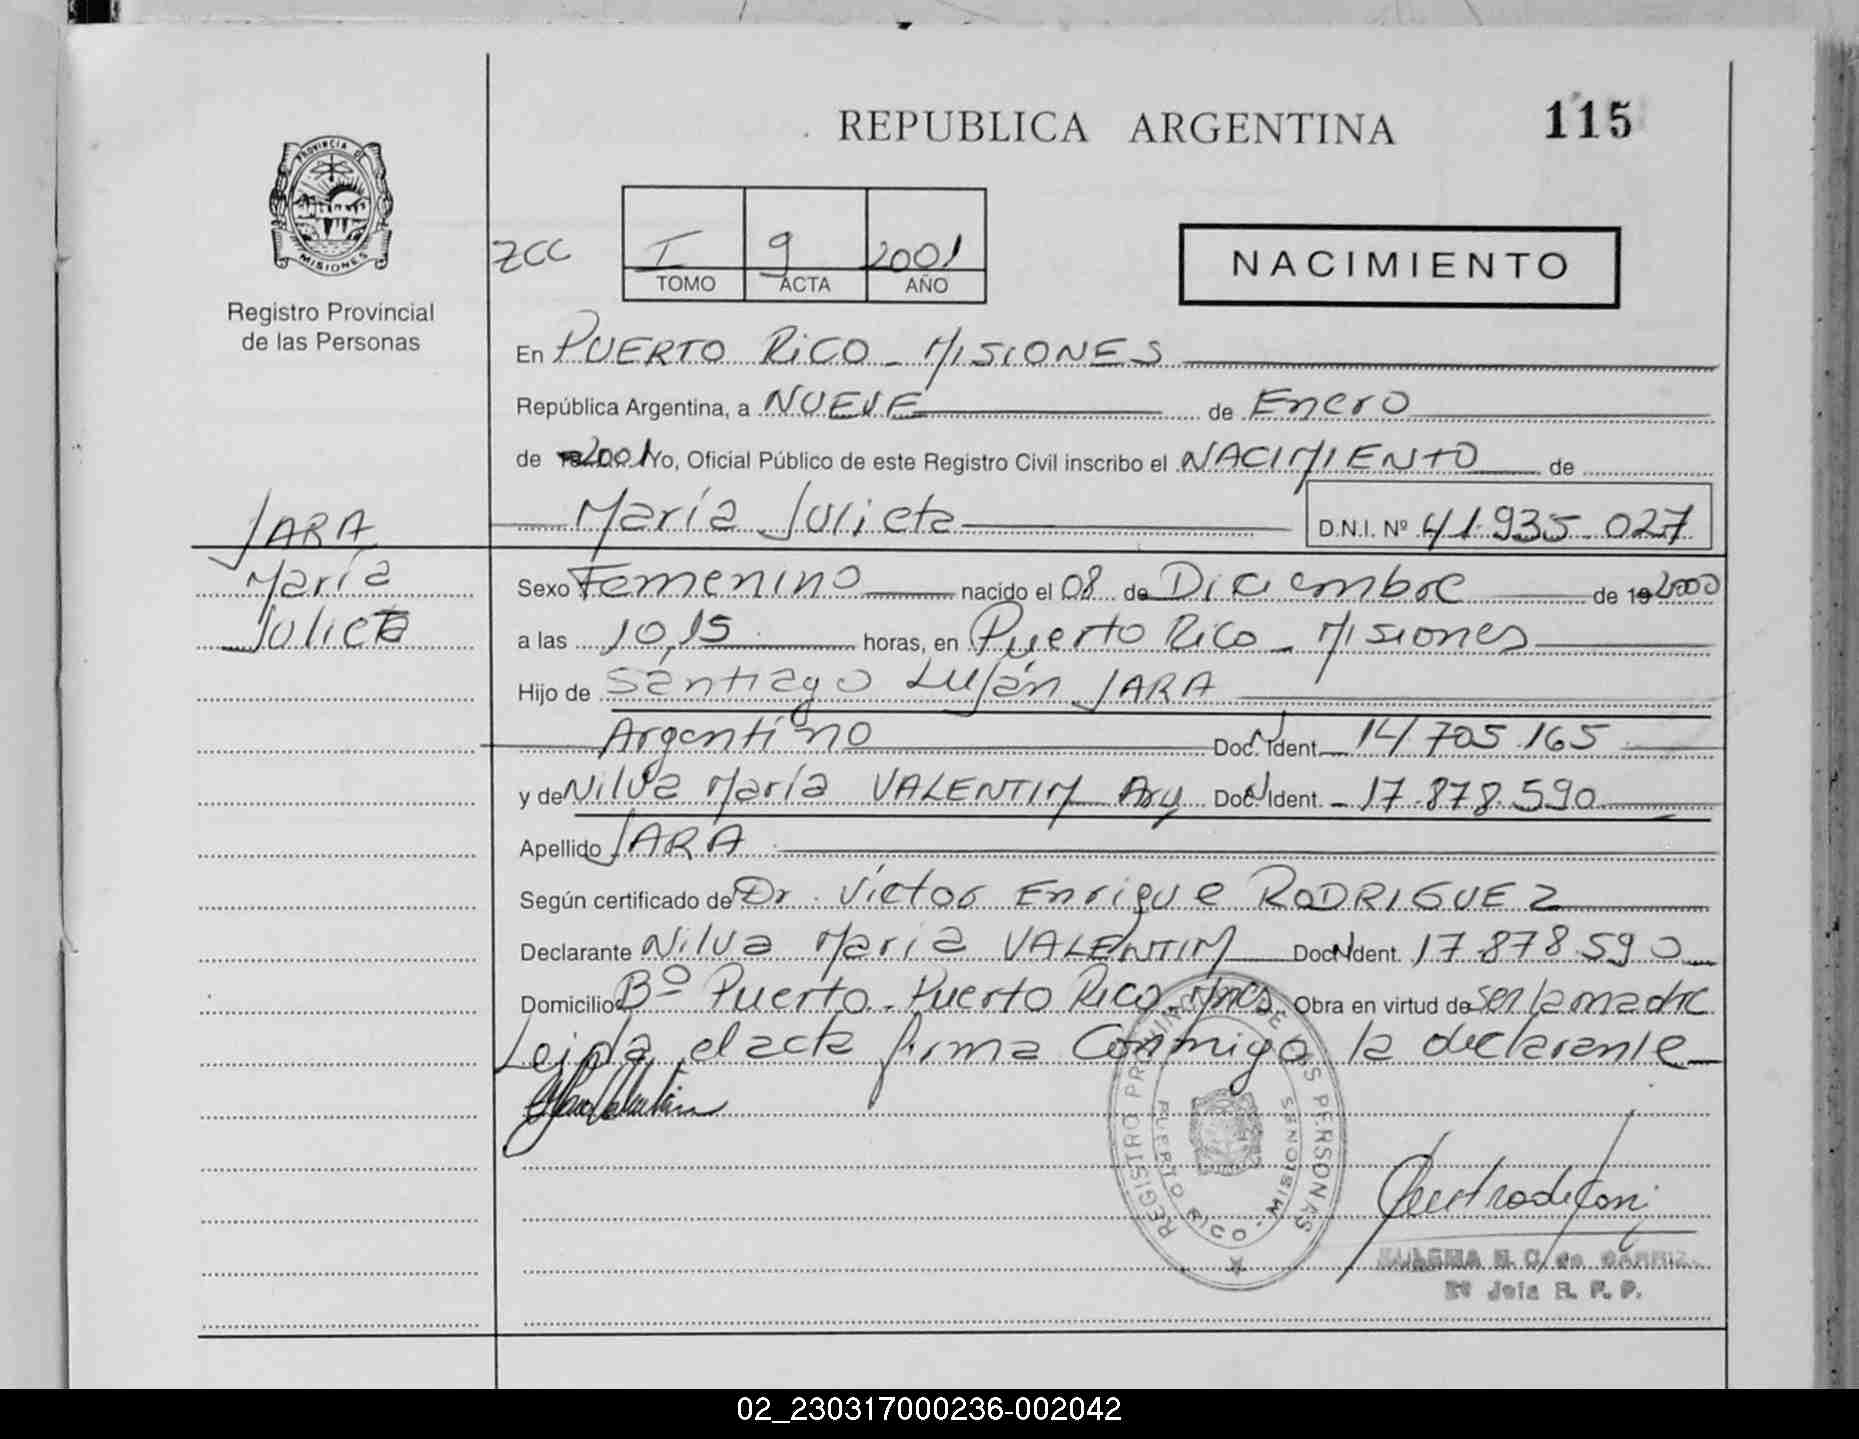 REPUBLICA ARGENTINA
115
PROVINCIA DE
MISIONES
Registro Provincial
de las Personas
ZCC
I 9 2001
TOMO ACTA AÑO
NACIMIENTO
En PUERTO RICO - MISIONES
República Argentina, a NUEVE de Enero
de 2001 Yo, Oficial Público de este Registro Civil inscribo el NACIMIENTO de
María Julieta D.N.I. Nº 41.935.027
JARA
María
Julieta
Sexo Femenino nacido el 08 de Diciembre de 19 2000
a las 10,15 horas, en Puerto Rico - Misiones
Hijo de Santiago Luján JARA
Argentino Doc. Ident. 14.705.165
y de Nilva María VALENTIM Arg Doc. Ident. - 17.878.590
Apellido JARA
Según certificado de Dr. Víctor Enrique RODRIGUEZ
Declarante Nilva María VALENTIM Doc. Ident. 17.878.590
Domicilio Bº Puerto - Puerto Rico Mnes Obra en virtud de ser la madre
Leída el acta firma conmigo la declarante
REGISTRO PROVINCIAL DE LAS PERSONAS
PUERTO RICO - MISIONES
2º Jefa R. P. P.
02_230317000236-002042